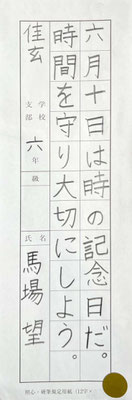 六月十日は時の記念日だ。
時間を守り大切にしよう。
学校
支部
佳玄
六年
級
氏名
馬場 望